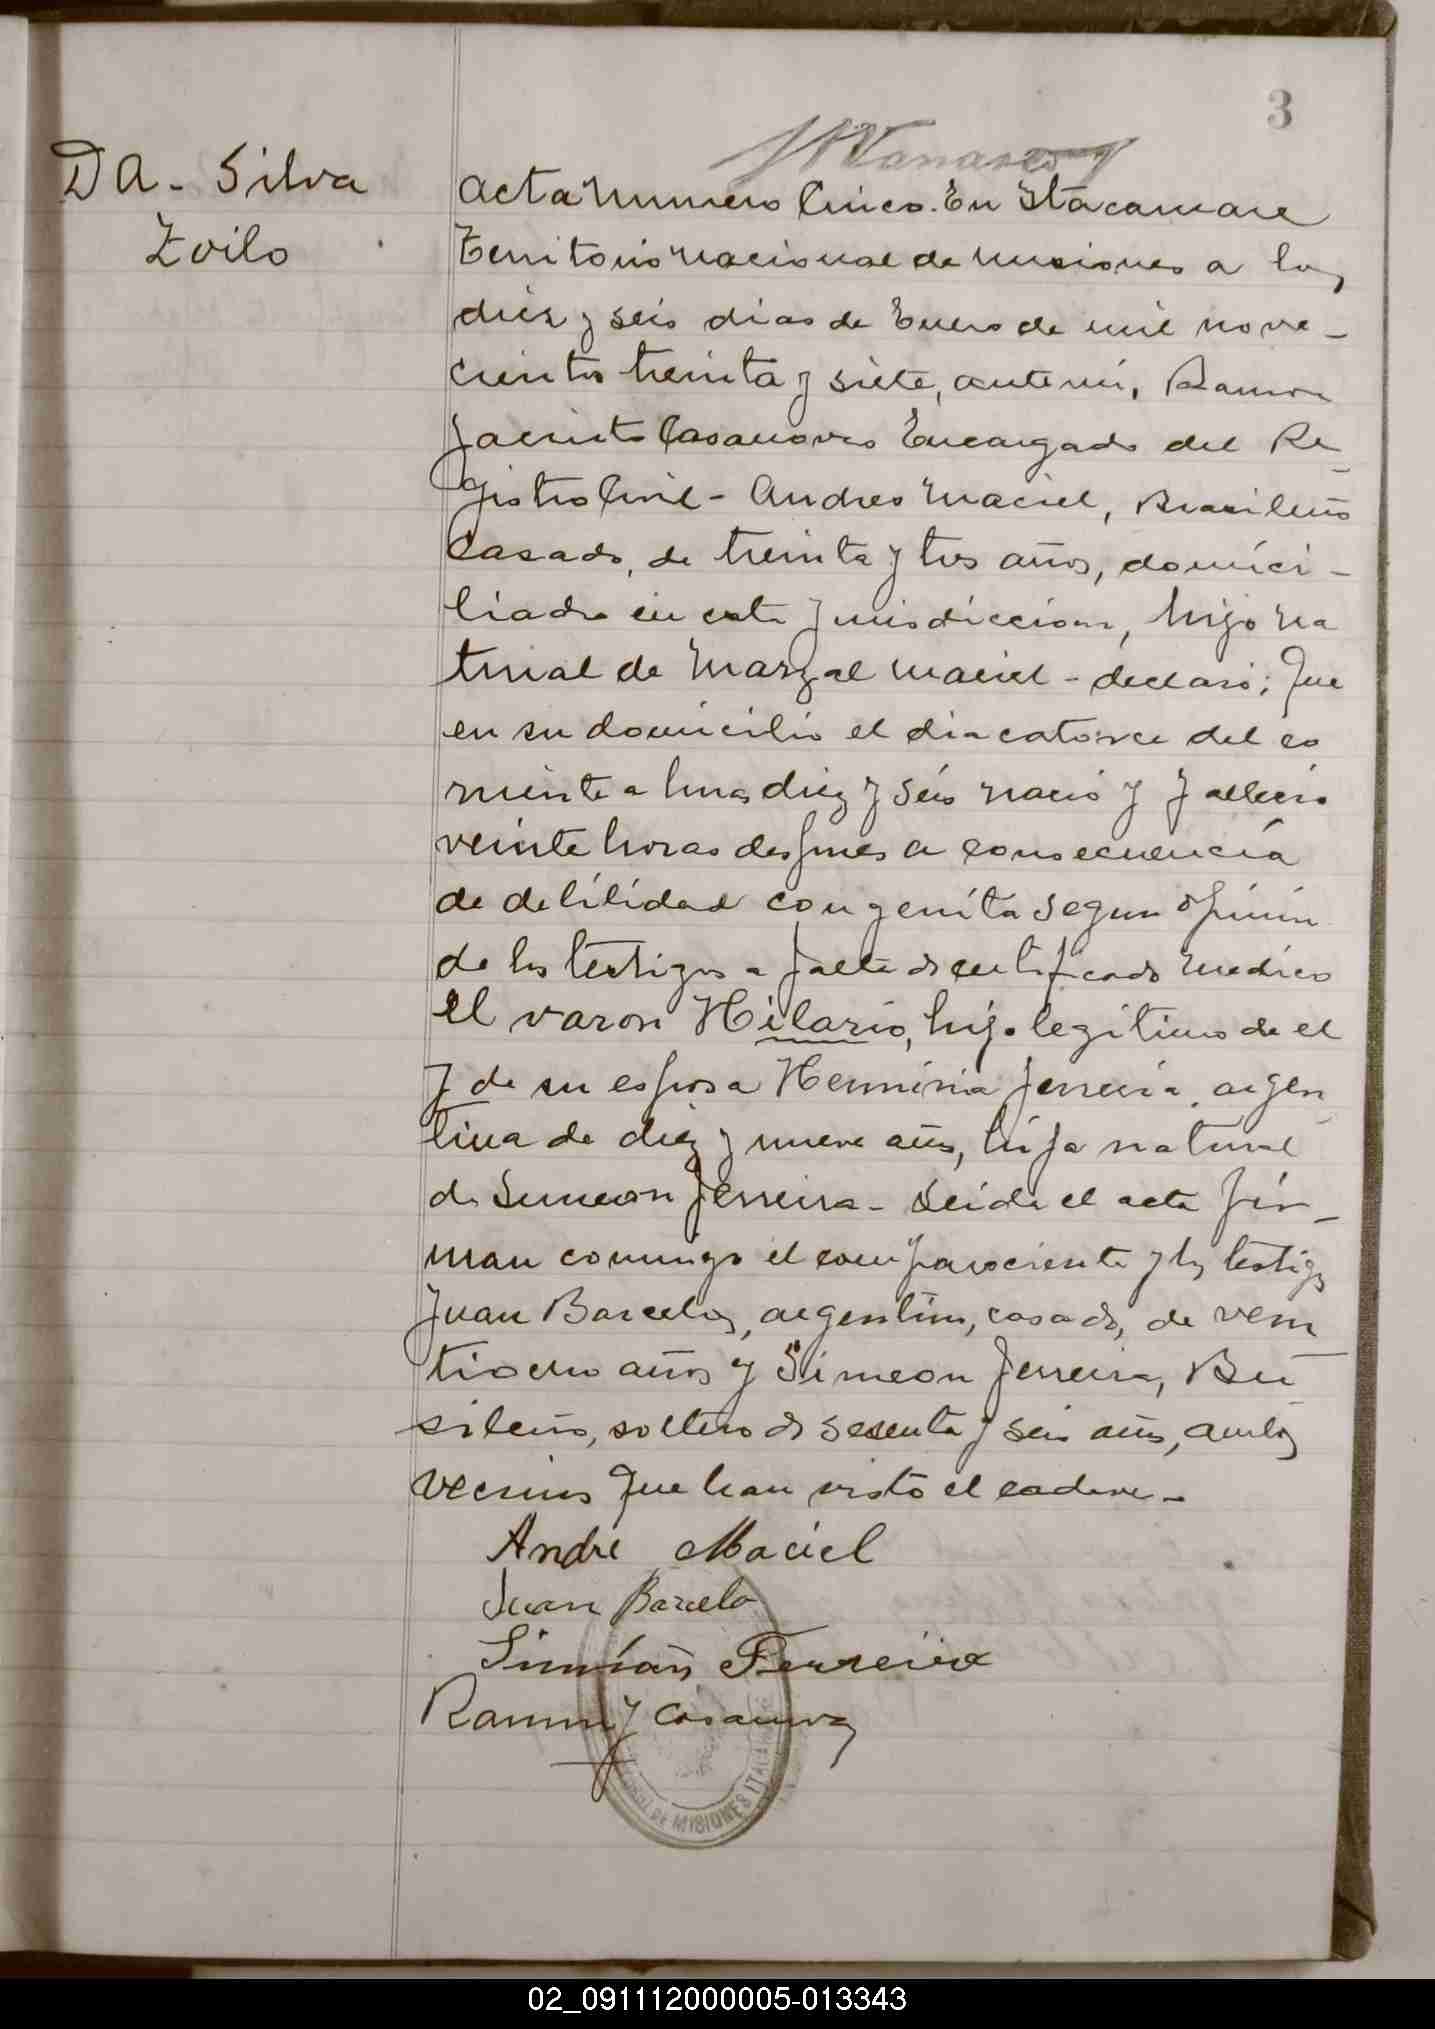 3
DA- Silva
Zoilo
Acta numero Cinco. En Itacaruare
Territorio nacional de Misiones a los
diez y seis dias de Enero de mil nove-
cientos treinta y siete, ante mi, Ramon
Jacinto Casanova Encargado del Re_
gistro Civil - Andres Maciel, Brasileño
Casado, de treinta y tres años, domici-
liado en esta jurisdiccion, hijo na
tural de Marzal Maciel - declaro; que
en su domicilio el dia catorce del co
rriente a horas diez y seis nacio y fallecio
veinte horas despues a consecuencia
de debilidad congenita segun opinion
de los testigos a falta de certificado medico
el varon Hilario, hijo legitimo de el
y de su esposa Herminia Ferreira, argen
tina de diez y nueve años, hija natural
de Simeon Ferreira - Leida el acta fir_
man conmigo el compareciente y los testigos
Juan Barcelo, argentino, casado, de vein
tiocho años y Simeon Ferreira, Bra
sileño, soltero de sesenta y seis años, ambos
vecinos que han visto el cadaver -
André Maciel
Juan Barcelo
Ferreira
Ramon J Casanova
DE MISIONES
02_091112000005-013343